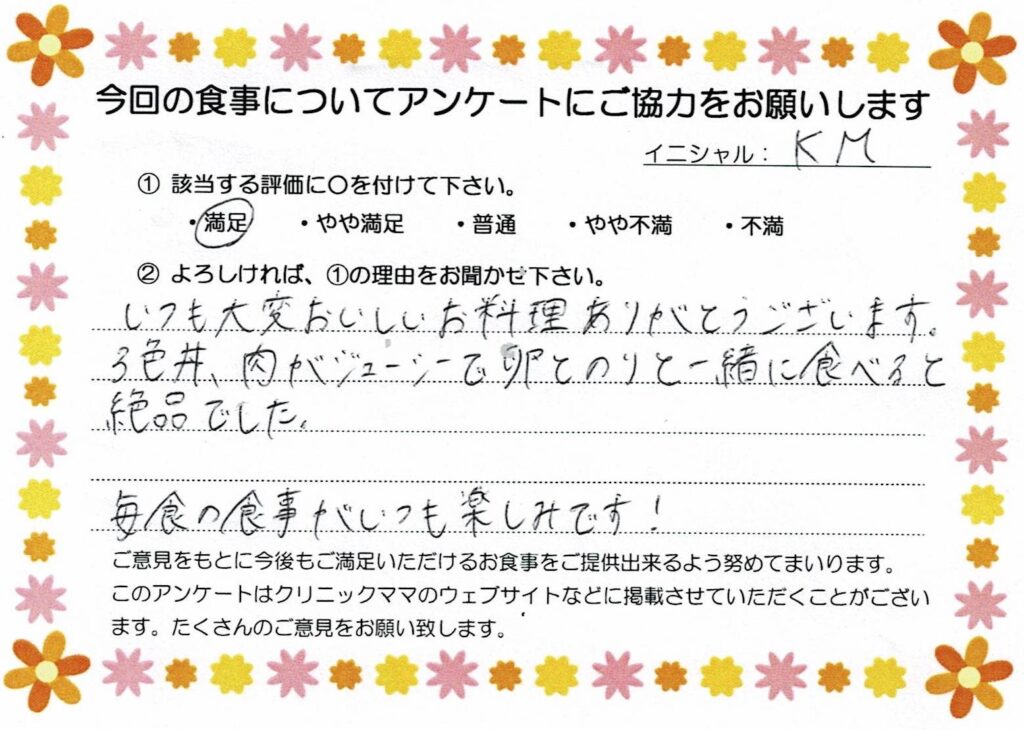 今回の食事についてアンケートにご協力をお願いします
イニシャル： KM
① 該当する評価に〇を付けて下さい。
・満足 ・やや満足 ・普通 ・やや不満 ・不満
② よろしければ、①の理由をお聞かせ下さい。
いつも大変おいしいお料理ありがとうございます。
3色丼、肉がジューシーで卵とのりと一緒に食べると
絶品でした。
毎食の食事がいつも楽しみです！
ご意見をもとに今後もご満足いただけるお食事をご提供出来るよう努めてまいります。
このアンケートはクリニックママのウェブサイトなどに掲載させていただくことがござい
ます。たくさんのご意見をお願い致します。